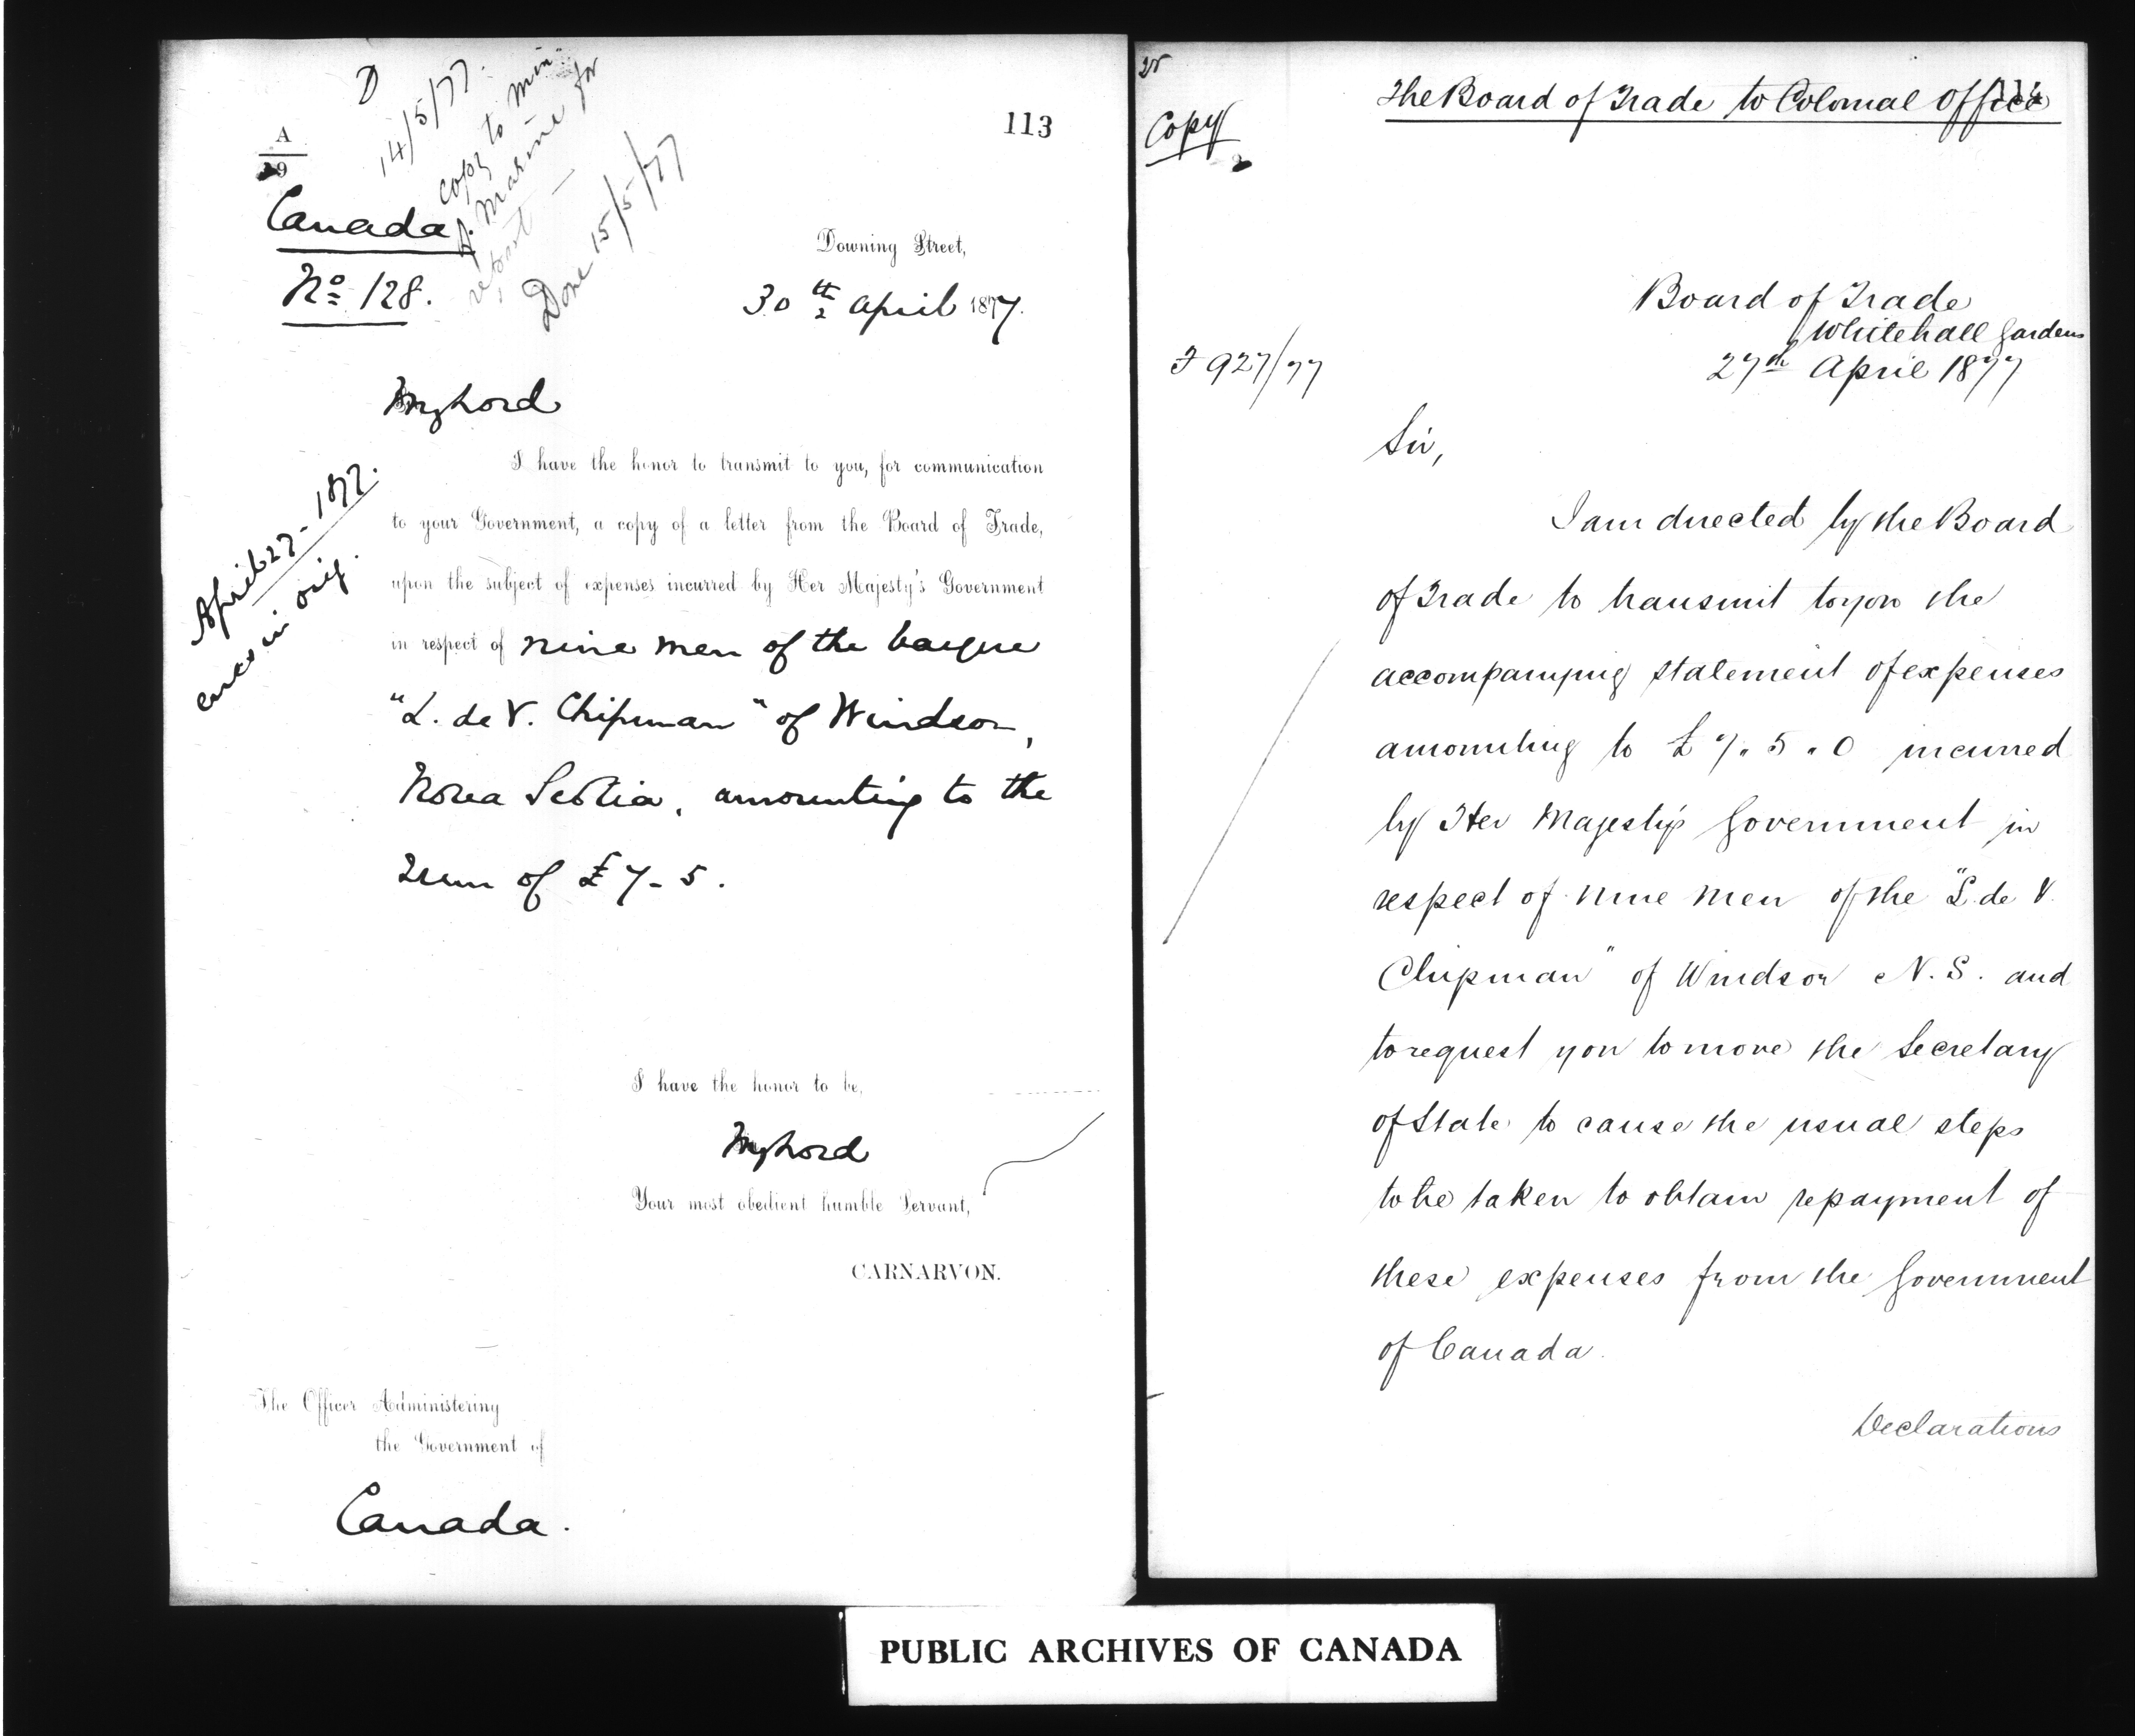 D
14/5/77.
Copy to Min:
of Marine for
report —
Done 15/5/77
113
A
29
Canada.
No. 128.
Downing Street,
30th April 1877.
My Lord
I have the honor to transmit to you, for communication
to your Government, a copy of a letter from the Board of Trade,
upon the subject of expenses incurred by Her Majesty's Government
in respect of nine men of the barque
"L. de V. Chipman" of Windsor,
Nova Scotia, amounting to the
sum of £7-5.
April 27-1877.
encs in orig.
I have the honor to be,
My Lord
Your most obedient humble Servant,
CARNARVON.
The Officer Administering
the Government of
Canada.
The Board of Trade to Colonial Office
114
Copy
Board of Trade
Whitehall Gardens
27th April 1877
F 927/77
Sir,
I am directed by the Board
of Trade to transmit to you the
accompanying statement of expenses
amounting to £7.5.0 incurred
by Her Majesty's Government in
respect of nine men of the "L. de V.
Chipman" of Windsor N.S. and
to request you to move the Secretary
of State to cause the usual steps
to be taken to obtain repayment of
these expenses from the Government
of Canada.
Declarations
PUBLIC ARCHIVES OF CANADA